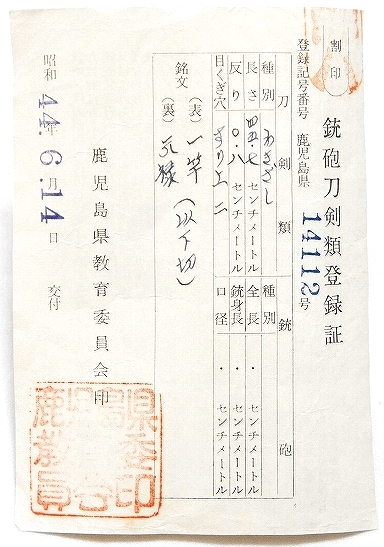 割印
銃砲刀剣類登録証
登録記号番号 鹿児島県 14112号
刀剣類
種別 わきざし
長さ 四五・七 センチメートル
反り 〇・八 センチメートル
目くぎ穴 すり上 二
銃砲
種別
全長 ・ センチメートル
銃身長 ・ センチメートル
口径 ・ センチメートル
銘文 (表) 一竿(以下切)
(裏) 元禄
昭和44年6月14日 交付
鹿児島県教育委員会印